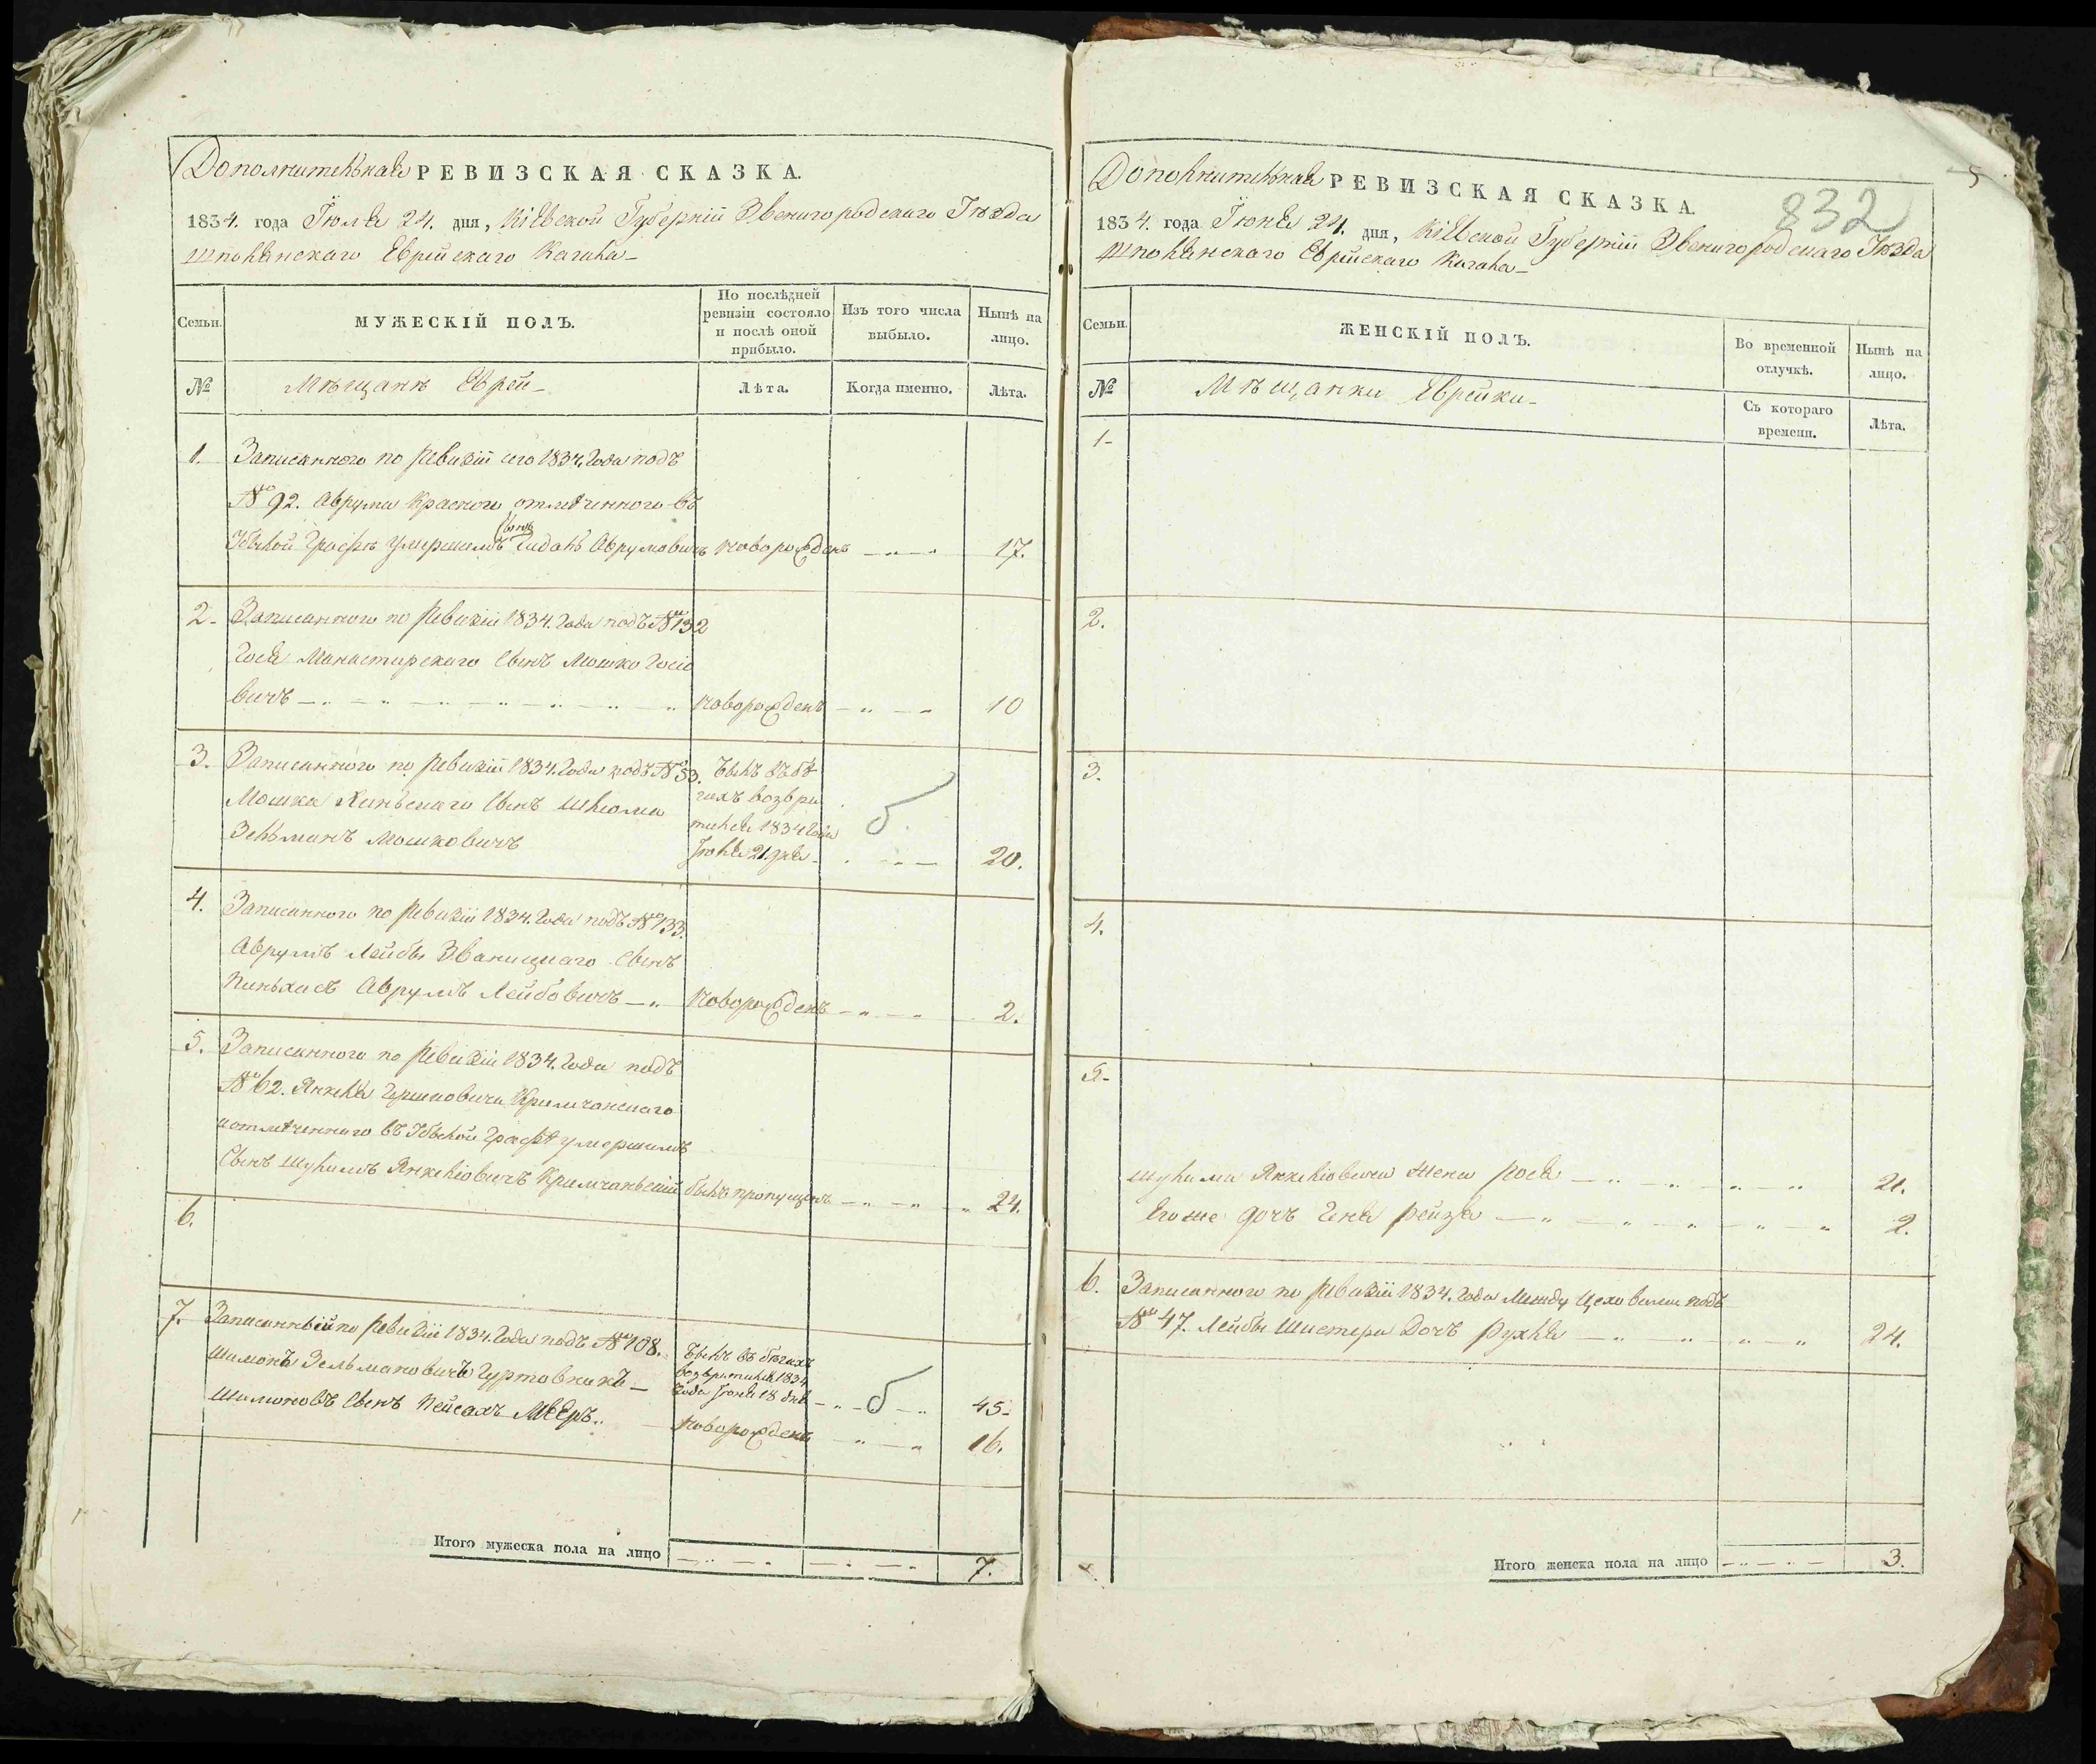 Дополнительная РЕВИЗСКАЯ СКАЗКА.
1834. года Іюля 24. дня, Кіевской Губерніи Звенигородскаго Уѣзда
Шполянскаго Еврейскаго Кагала
Семьи.
МУЖЕСКІЙ ПОЛЪ.
По послѣдней
ревизіи состояло
и послѣ оной
прибыло.
Изъ того числа
выбыло.
Нынѣ на
лицо.
№
Мѣщанѣ Евреи
Лѣта.
Когда именно.
Лѣта.
1. Записанного по ревизіи сего 1834. года подъ
№ 92. Аврума Красного отмѣченного въ
сынъ
убылой графѣ умершимъ Аврумовичъ новорожденъ 17.
2. Записанного по ревизіи 1834. года подъ № 132
Іося Манастирскаго сынъ Мошко Іосіо
вичъ новорожденъ 10
3. Записанного по ревизіи 1834. года подъ № 53. былъ въ бѣ
Мошка сынъ Шліома гахъ возвра
б
Зельманъ Мошковичъ тился 1834 года
21 дня 20.
4. Записанного по ревизіи 1834. года подъ № 133.
Аврумъ Лейбы Званицкаго сынъ
Пиньхасъ Аврумъ Лейбовичъ новорожденъ 2.
5. Записанного по ревизіи 1834. года подъ
№ 62. Янкеля Гершковича Кримчанскаго
отмѣченного въ убылой графѣ умершимъ
сынъ Шулимъ Янкеліовичъ Кримчанскій былъ пропущенъ 24.
6.
7. Записанный по ревизіи 1834. года подъ № 108. былъ въ бѣгахъ
Шимонъ Зельмановичъ Гуртовникъ возвратился 1834
года 18 дня б 45.
Шимоновъ сынъ Пейсахъ Мееръ новорожденъ 16.
Итого мужеска пола на лицо 7.
Дополнительная РЕВИЗСКАЯ СКАЗКА.
832
1834. года Іюня 24. дня, Кіевской Губерніи Звенигородскаго Уѣзда
Шполянскаго Еврейскаго Кагала
Семьи.
ЖЕНСКІЙ ПОЛЪ.
Во временной
отлучкѣ.
Нынѣ на
лицо.
№
Мѣщанки Еврейки
Съ котораго
времени.
Лѣта.
1
2.
3.
4.
5
Шулима Янкеліовича жена Рося 21.
Его же дочъ Рейзя 2.
6. Записанного по ревизіи 1834. года между Цеховыми подъ
№ 47. Лейбы Шистера дочъ Рухля 24.
Итого женска пола на лицо 3.